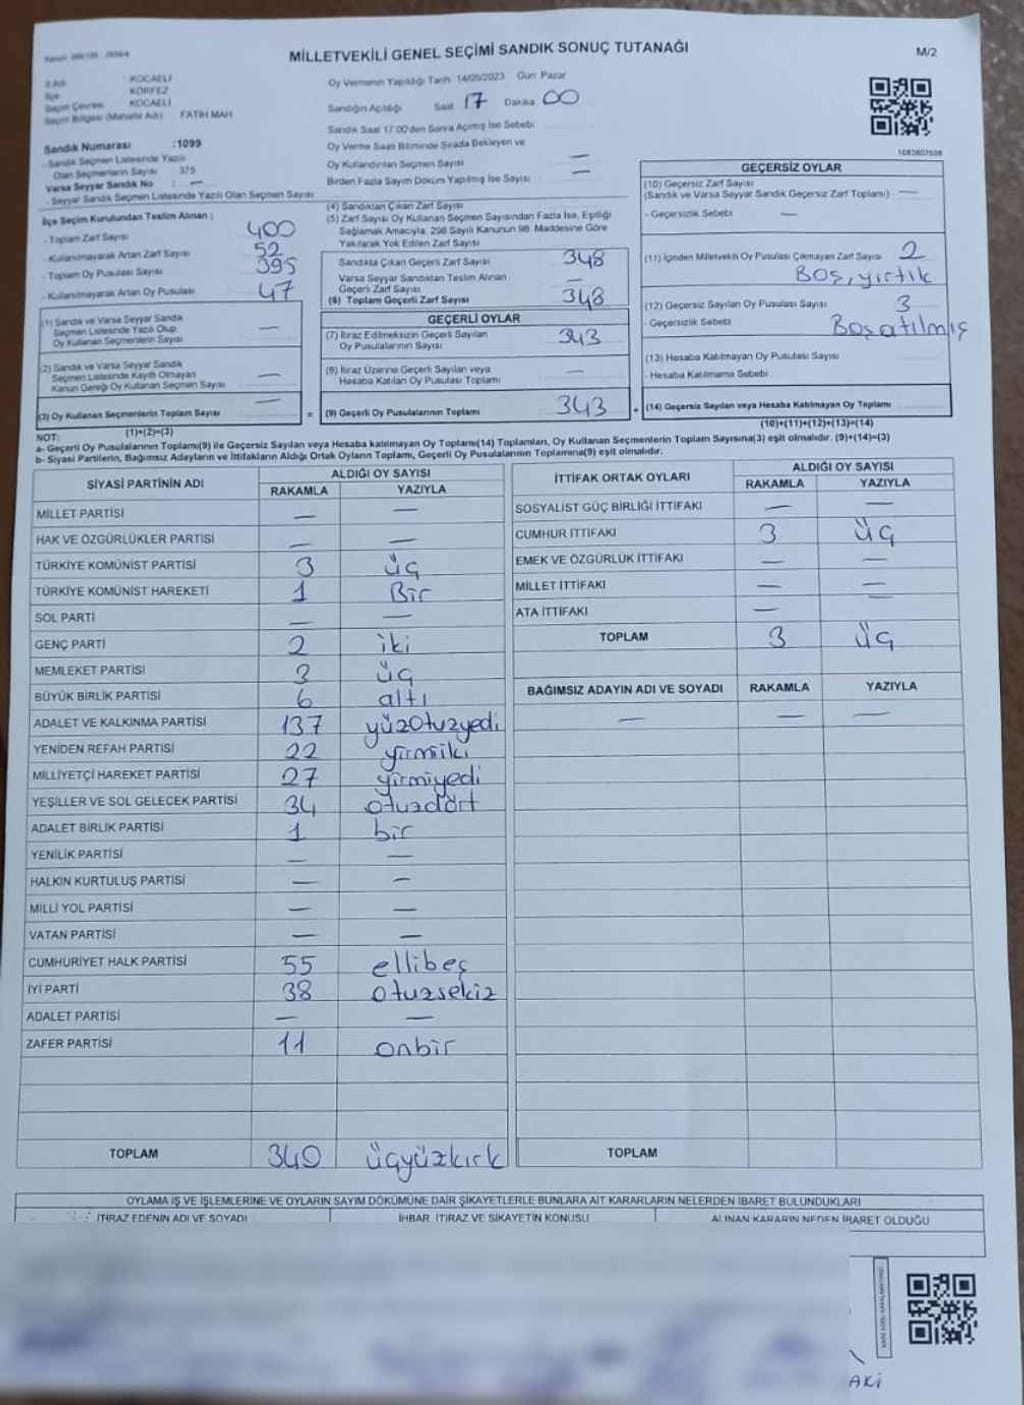 MİLLETVEKİLİ GENEL SEÇİMİ SANDIK SONUÇ TUTANAĞI
M/2
KOCAELİ
KÖRFEZ
KOCAELİ
Seçim Bölgesi (Mahalle Adı) FATİH MAH
Sandık Numarası :1099
- Sandık Seçmen Listesinde Yazılı
Olan Seçmenlerin Sayısı 375
Varsa Seyyar Sandık No : —
- Seyyar Sandık Seçmen Listesinde Yazılı Olan Seçmen Sayısı
İlçe Seçim Kurulundan Teslim Alınan :
- Toplam Zarf Sayısı 400
- Kullanılmayarak Artan Zarf Sayısı 52
- Toplam Oy Pusulası Sayısı 395
- Kullanılmayarak Artan Oy Pusulası 47
(1) Sandık ve Varsa Seyyar Sandık
Seçmen Listesinde Yazılı Olup
Oy Kullanan Seçmenlerin Sayısı —
(2) Sandık ve Varsa Seyyar Sandık
Seçmen Listesinde Kayıtlı Olmayan
Kanun Gereği Oy Kullanan Seçmen Sayısı —
(3) Oy Kullanan Seçmenlerin Toplam Sayısı —
(1)+(2)=(3)
Oy Vermenin Yapıldığı Tarih 14/05/2023 Gün: Pazar
Sandığın Açıldığı Saat 17 Dakika 00
Sandık Saat 17:00'den Sonra Açılmış İse Sebebi
Oy Verme Saati Bitiminde Sırada Bekleyen ve
Oy Kullandırılan Seçmen Sayısı —
Birden Fazla Sayım Döküm Yapılmış İse Sayısı —
(4) Sandıktan Çıkan Zarf Sayısı
(5) Zarf Sayısı Oy Kullanan Seçmen Sayısından Fazla İse, Eşitliği
Sağlamak Amacıyla, 298 Sayılı Kanunun 98. Maddesine Göre
Yakılarak Yok Edilen Zarf Sayısı
Sandıkta Çıkan Geçerli Zarf Sayısı 348
Varsa Seyyar Sandıktan Teslim Alınan
Geçerli Zarf Sayısı —
(6) Toplam Geçerli Zarf Sayısı 348
GEÇERLİ OYLAR
(7) İtiraz Edilmeksizin Geçerli Sayılan
Oy Pusulalarının Sayısı 343
(8) İtiraz Üzerine Geçerli Sayılan veya
Hesaba Katılan Oy Pusulası Toplamı —
= (9) Geçerli Oy Pusulalarının Toplamı 343
GEÇERSİZ OYLAR
(10) Geçersiz Zarf Sayısı
(Sandık ve Varsa Seyyar Sandık Geçersiz Zarf Toplamı) —
- Geçersizlik Sebebi —
(11) İçinden Milletvekili Oy Pusulası Çıkmayan Zarf Sayısı 2
Boş, yırtık
(12) Geçersiz Sayılan Oy Pusulası Sayısı 3
- Geçersizlik Sebebi Boş atılmış
(13) Hesaba Katılmayan Oy Pusulası Sayısı
- Hesaba Katılmama Sebebi
+ (14) Geçersiz Sayılan veya Hesaba Katılmayan Oy Toplamı
(10)+(11)+(12)+(13)=(14)
NOT:
a- Geçerli Oy Pusulalarının Toplamı(9) ile Geçersiz Sayılan veya Hesaba katılmayan Oy Toplamı(14) Toplamları, Oy Kullanan Seçmenlerin Toplam Sayısına(3) eşit olmalıdır. (9)+(14)=(3)
b- Siyasi Partilerin, Bağımsız Adayların ve İttifakların Aldığı Ortak Oyların Toplamı, Geçerli Oy Pusulalarının Toplamına(9) eşit olmalıdır.
SİYASİ PARTİNİN ADI
ALDIĞI OY SAYISI
RAKAMLA YAZIYLA
MİLLET PARTİSİ — —
HAK VE ÖZGÜRLÜKLER PARTİSİ — —
TÜRKİYE KOMÜNİST PARTİSİ 3 üç
TÜRKİYE KOMÜNİST HAREKETİ 1 Bir
SOL PARTİ — —
GENÇ PARTİ 2 iki
MEMLEKET PARTİSİ 3 üç
BÜYÜK BİRLİK PARTİSİ 6 altı
ADALET VE KALKINMA PARTİSİ 137 yüzotuzyedi
YENİDEN REFAH PARTİSİ 22 yirmiiki
MİLLİYETÇİ HAREKET PARTİSİ 27 yirmiyedi
YEŞİLLER VE SOL GELECEK PARTİSİ 34 otuzdört
ADALET BİRLİK PARTİSİ 1 bir
YENİLİK PARTİSİ — —
HALKIN KURTULUŞ PARTİSİ — —
MİLLİ YOL PARTİSİ — —
VATAN PARTİSİ — —
CUMHURİYET HALK PARTİSİ 55 ellibeş
İYİ PARTİ 38 otuzsekiz
ADALET PARTİSİ — —
ZAFER PARTİSİ 11 onbir
TOPLAM 340 üçyüzkırk
İTTİFAK ORTAK OYLARI
ALDIĞI OY SAYISI
RAKAMLA YAZIYLA
SOSYALİST GÜÇ BİRLİĞİ İTTİFAKI — —
CUMHUR İTTİFAKI 3 üç
EMEK VE ÖZGÜRLÜK İTTİFAKI — —
MİLLET İTTİFAKI — —
ATA İTTİFAKI — —
TOPLAM 3 üç
BAĞIMSIZ ADAYIN ADI VE SOYADI RAKAMLA YAZIYLA
— — —
TOPLAM
OYLAMA İŞ VE İŞLEMLERİNE VE OYLARIN SAYIM DÖKÜMÜNE DAİR ŞİKAYETLERLE BUNLARA AİT KARARLARIN NELERDEN İBARET BULUNDUKLARI
İTİRAZ EDENİN ADI VE SOYADI İHBAR, İTİRAZ VE ŞİKAYETİN KONUSU ALINAN KARARIN NEDEN İBARET OLDUĞU
AKİ